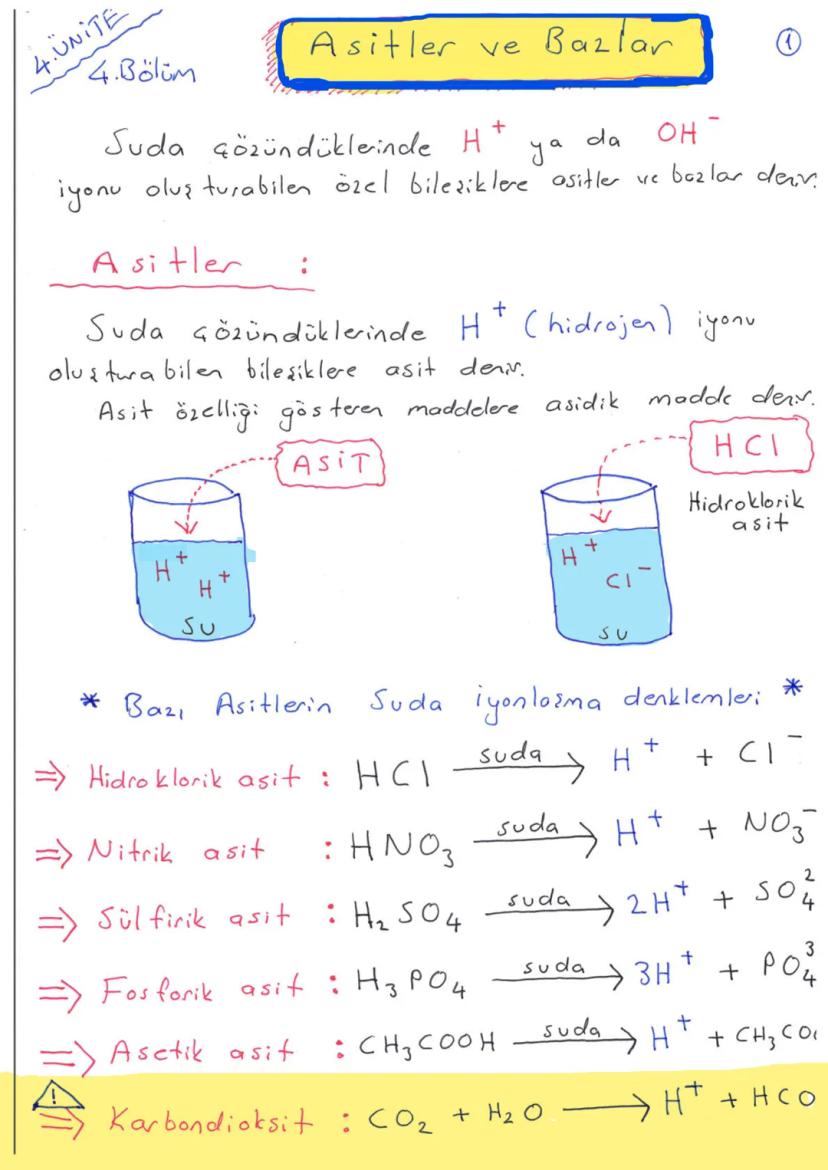 4.ÜNİTE
4.Bölüm
Asitler ve Bazlar
1
Suda çözündüklerinde H⁺ ya da OH⁻
iyonu oluşturabilen özel bileşiklere asitler ve bazlar denir.
Asitler :
Suda çözündüklerinde H⁺ (hidrojen) iyonu
oluşturabilen bileşiklere asit denir.
Asit özelliği gösteren maddelere asidik madde denir.
ASİT
H⁺
H⁺
SU
HCl
Hidroklorik
asit
H⁺
Cl⁻
SU
* Bazı Asitlerin Suda iyonlaşma denklemleri *
⇒ Hidroklorik asit : HCl suda→ H⁺ + Cl⁻
⇒ Nitrik asit : HNO₃ suda→ H⁺ + NO₃⁻
⇒ Sülfirik asit : H₂SO₄ suda→ 2H⁺ + SO₄²
⇒ Fosforik asit : H₃PO₄ suda→ 3H⁺ + PO₄³
⇒ Asetik asit : CH₃COOH suda→ H⁺ + CH₃CO
! ⇒ Karbondioksit : CO₂ + H₂O → H⁺ + HCO